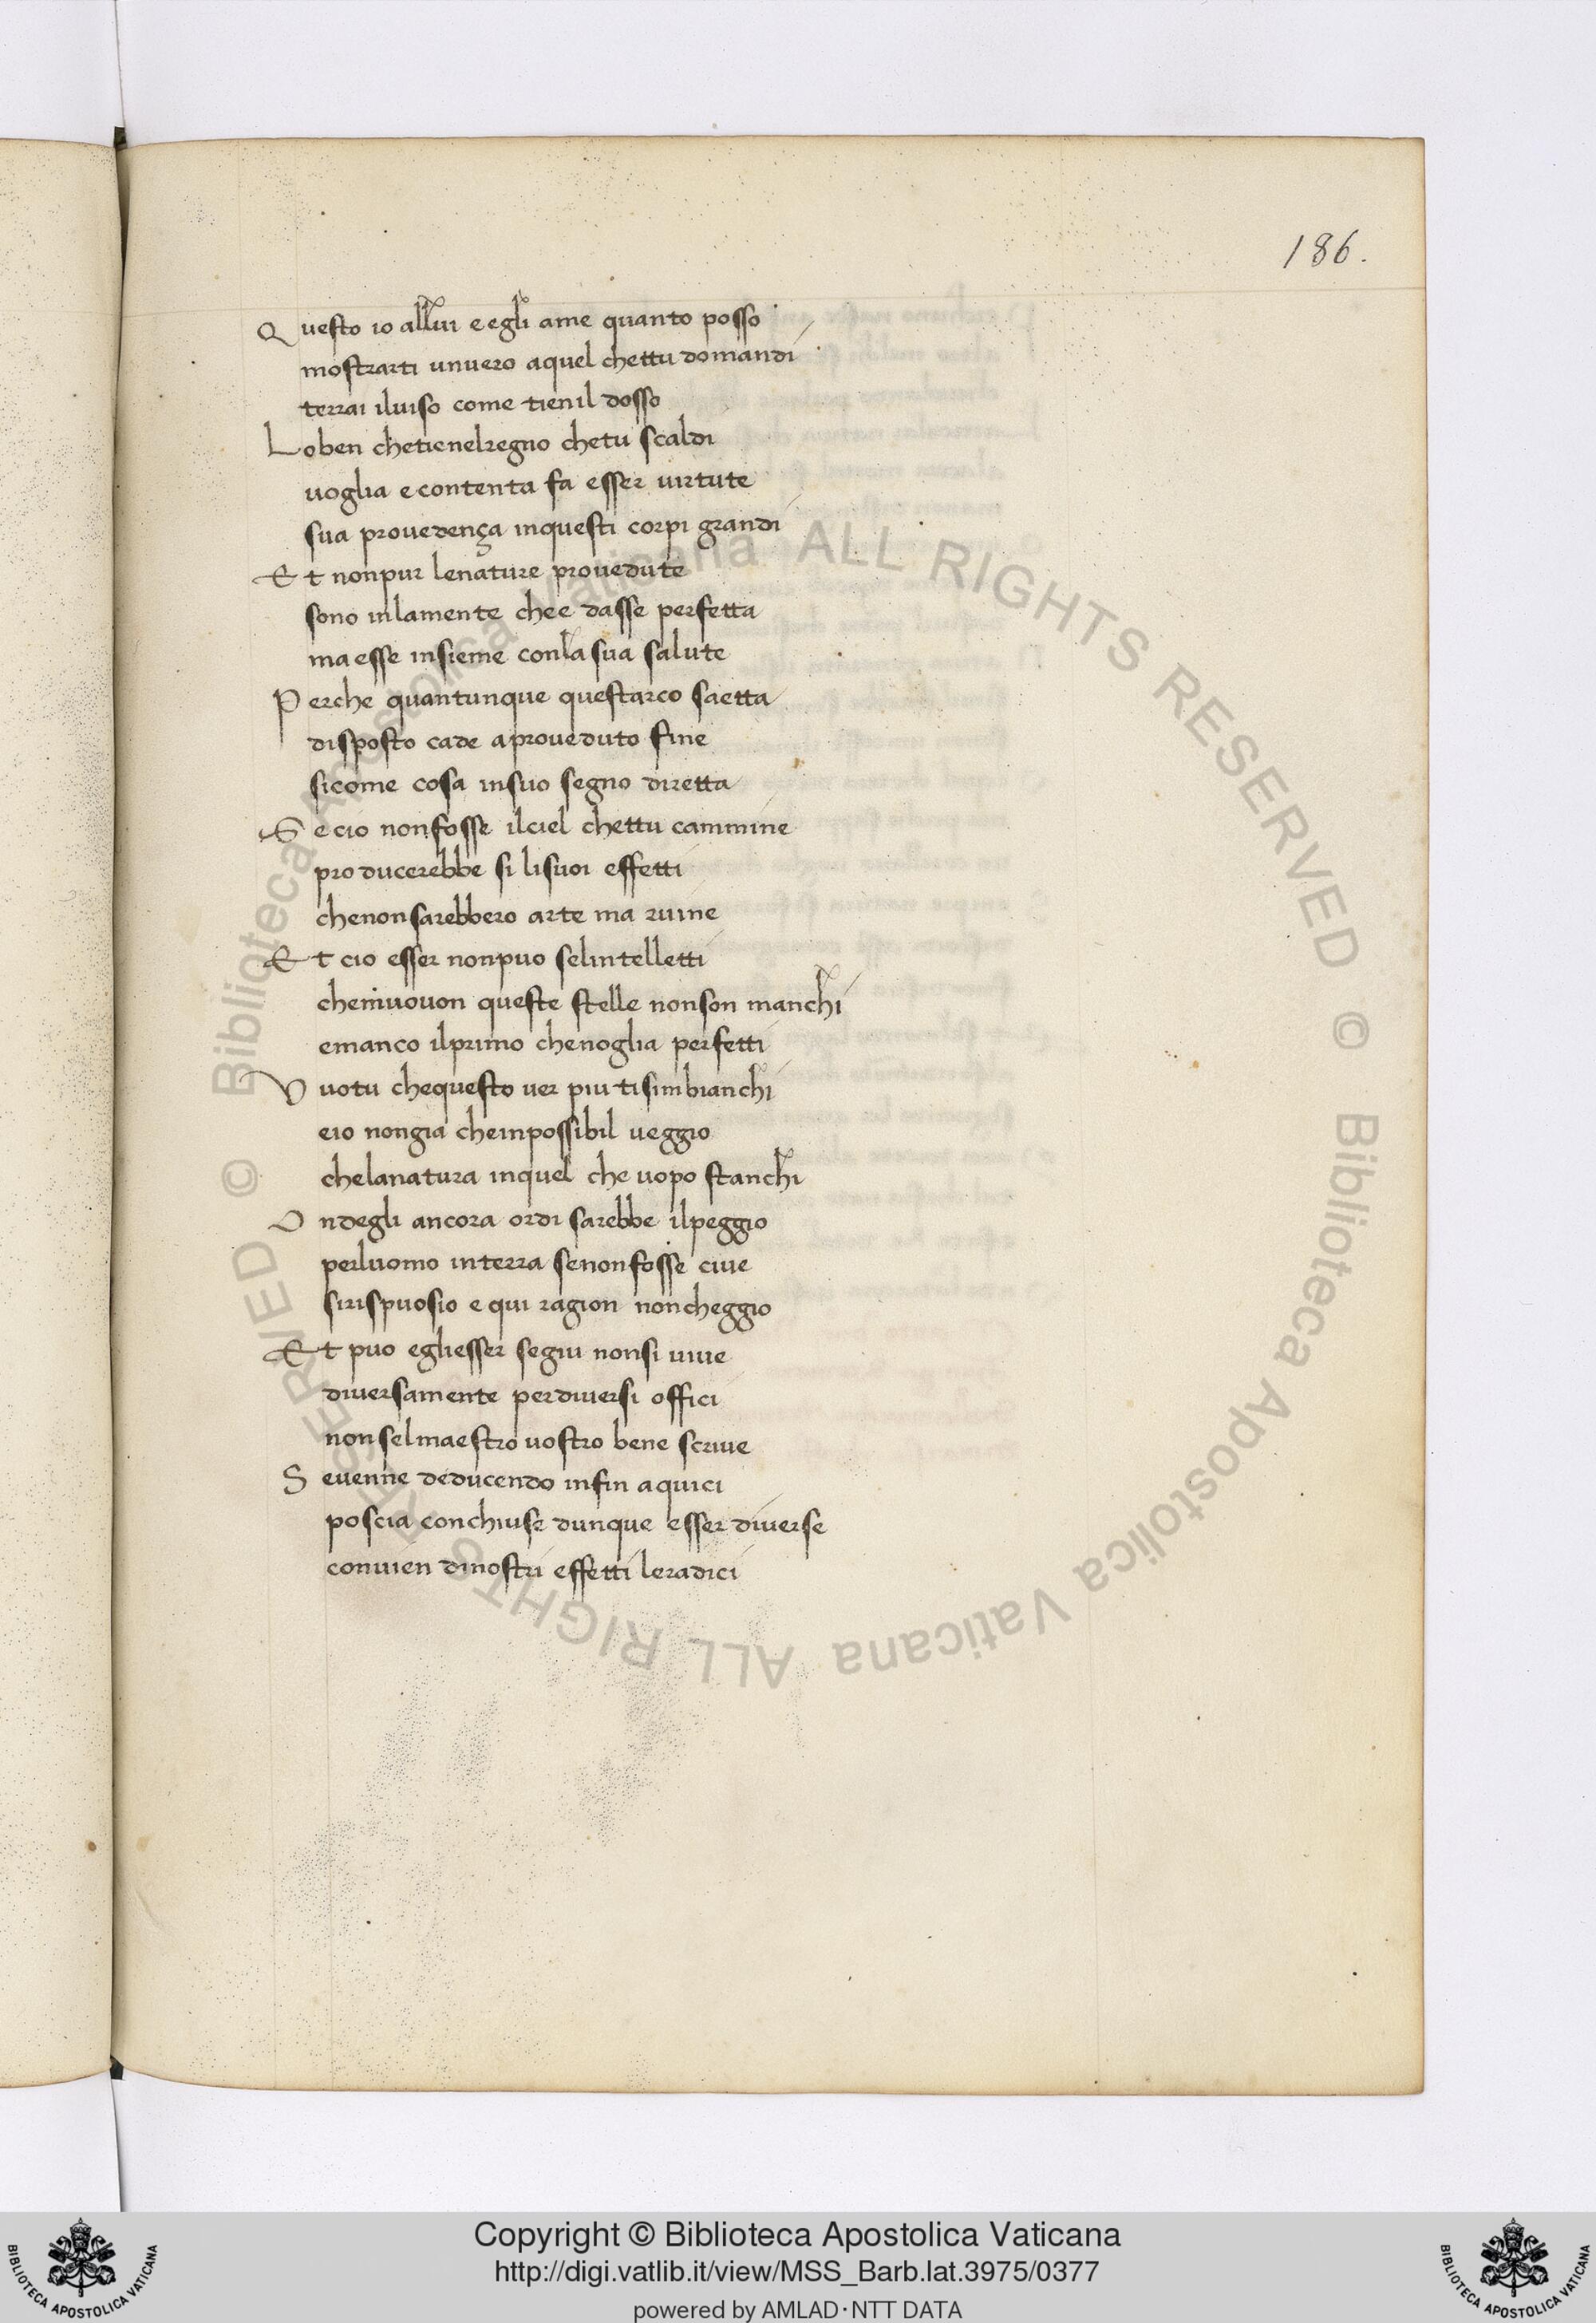 186.
Questo io allui e egli ame quanto posso
mostrarti unuero aquel chettu domandi
terrai iluiso come tienil dosso
Loben chetienelregno chetu scaldi
uoglia e contenta fa esser uirtute
sua prouedença inquesti corpi grandi
Et nonpur lenature prouedute
sono inlamente chee dasse perfetta
ma esse insieme conla sua salute
Perche quantunque questarco saetta
disposto cade aproueduto fine
sicome cosa insuo segno diretta
Se cio nonfosse ilciel chettu cammine
producerebbe si lisuoi effetti
chenonsarebbero arte ma ruine
Et cio esser nonpuo selintelletti
chemuouon queste stelle nonson manchi
emanco ilprimo chenoglia perfetti
Vuotu chequesto uer piu tisimbianchi
eio nongia cheinpossibil ueggio
chelanatura inquel che uopo stanchi
Ondegli ancora ordi sarebbe ilpeggio
perluomo interra senonfosse ciue
sirispuosio e qui ragion noncheggio
Et puo egliesser segiu nonsi uiue
diuersamente perdiuersi offici
non selmaestro uostro bene scriue
Seuenne deducendo infin aquici
poscia conchiuse dunque esser diuerse
conuien diuostri effetti leradici
© Biblioteca Apostolica Vaticana ALL RIGHTS RESERVED © Biblioteca Apostolica Vaticana ALL RIGHTS RESERVED
Copyright © Biblioteca Apostolica Vaticana
http://digi.vatlib.it/view/MSS_Barb.lat.3975/0377
powered by AMLAD·NTT DATA
BIBLIOTECA APOSTOLICA VATICANA
BIBLIOTECA APOSTOLICA VATICANA